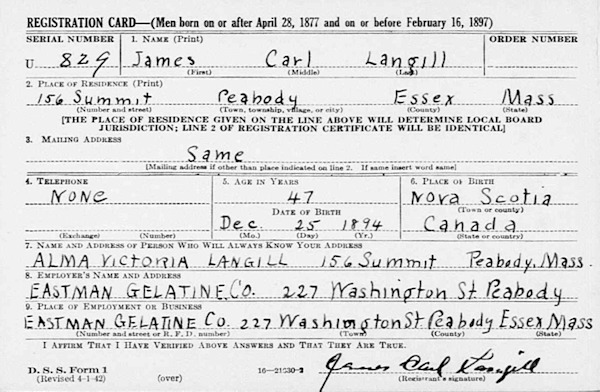 REGISTRATION CARD—(Men born on or after April 28, 1877 and on or before February 16, 1897)
SERIAL NUMBER 1. NAME (Print) ORDER NUMBER
U 829 James Carl Langill
(First) (Middle) (Last)
2. PLACE OF RESIDENCE (Print)
156 Summit Peabody Essex Mass
(Number and street) (Town, township, village, or city) (County) (State)
[THE PLACE OF RESIDENCE GIVEN ON THE LINE ABOVE WILL DETERMINE LOCAL BOARD
JURISDICTION; LINE 2 OF REGISTRATION CERTIFICATE WILL BE IDENTICAL]
3. MAILING ADDRESS
Same
[Mailing address if other than place indicated on line 2. If same insert word same]
4. TELEPHONE 5. AGE IN YEARS 6. PLACE OF BIRTH
NONE 47 Nova Scotia
DATE OF BIRTH (Town or county)
Dec. 25 1894 Canada
(Exchange) (Number) (Mo.) (Day) (Yr.) (State or country)
7. NAME AND ADDRESS OF PERSON WHO WILL ALWAYS KNOW YOUR ADDRESS
ALMA VICTORIA LANGILL 156 Summit Peabody, Mass.
8. EMPLOYER'S NAME AND ADDRESS
EASTMAN GELATINE, CO. 227 Washington St. Peabody
9. PLACE OF EMPLOYMENT OR BUSINESS
EASTMAN GELATINE Co. 227 Washington St Peabody Essex Mass
(Number and street or R. F. D. number) (Town) (County) (State)
I AFFIRM THAT I HAVE VERIFIED ABOVE ANSWERS AND THAT THEY ARE TRUE.
D. S. S. Form 1 James Carl Langill
(Revised 4-1-42) (over) 16—21630-2 (Registrant's signature)